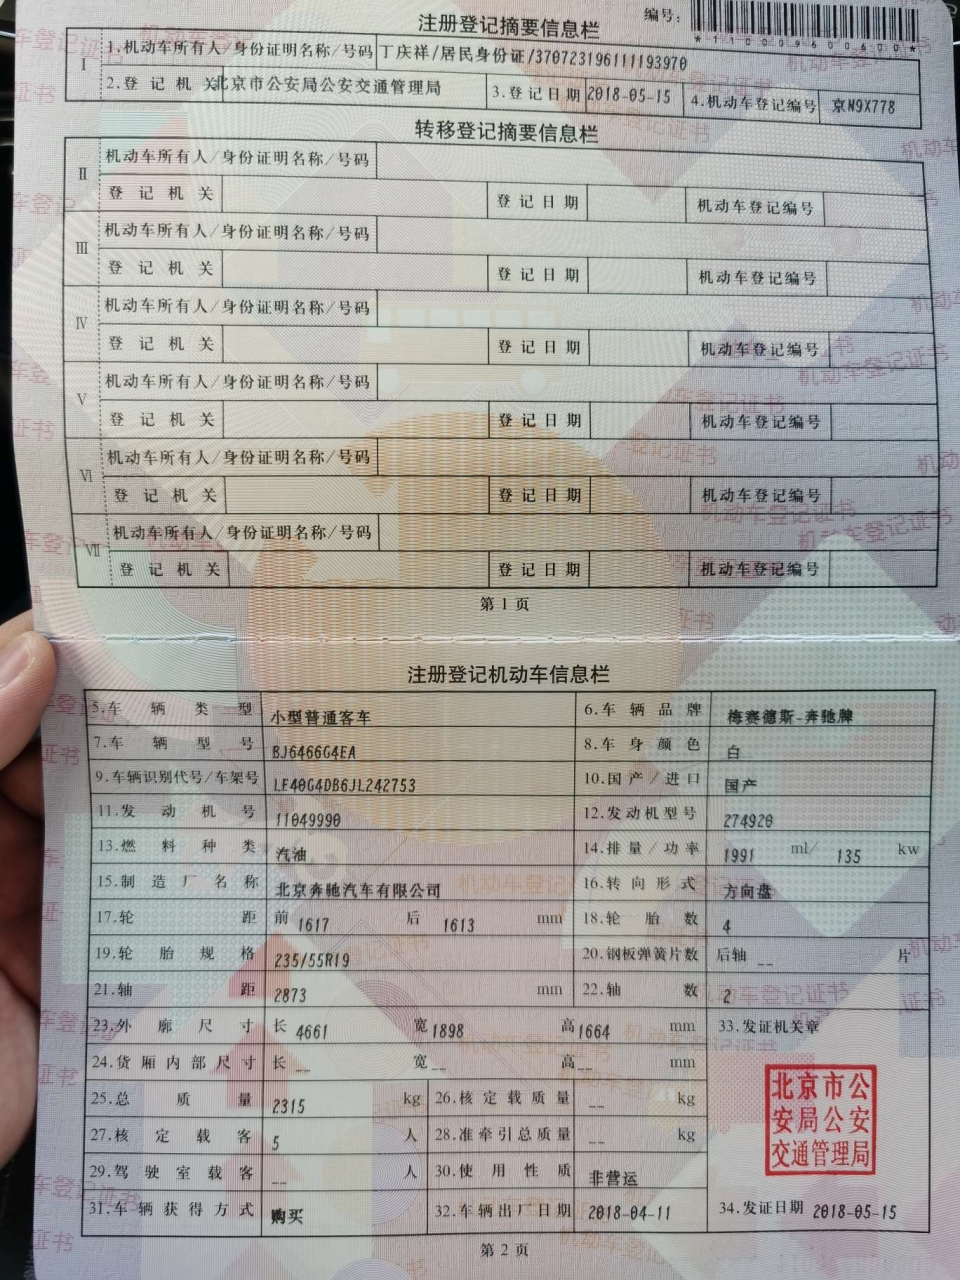 注册登记摘要信息栏
编号:
*110009600600*
I
1.机动车所有人/身份证明名称/号码 丁庆祥/居民身份证/370723196111193970
2.登记机关 北京市公安局公安交通管理局 3.登记日期 2018-05-15 4.机动车登记编号 京N9X778
转移登记摘要信息栏
II 机动车所有人/身份证明名称/号码
登记机关 登记日期 机动车登记编号
III 机动车所有人/身份证明名称/号码
登记机关 登记日期 机动车登记编号
IV 机动车所有人/身份证明名称/号码
登记机关 登记日期 机动车登记编号
V 机动车所有人/身份证明名称/号码
登记机关 登记日期 机动车登记编号
VI 机动车所有人/身份证明名称/号码
登记机关 登记日期 机动车登记编号
VII 机动车所有人/身份证明名称/号码
登记机关 登记日期 机动车登记编号
第1页
注册登记机动车信息栏
5.车辆类型 小型普通客车 6.车辆品牌 梅赛德斯-奔驰牌
7.车辆型号 BJ6466G4EA 8.车身颜色 白
9.车辆识别代号/车架号 LE40G4DB6JL242753 10.国产/进口 国产
11.发动机号 11049990 12.发动机型号 274920
13.燃料种类 汽油 14.排量/功率 1991 ml/ 135 kw
15.制造厂名称 北京奔驰汽车有限公司 16.转向形式 方向盘
17.轮距 前 1617 后 1613 mm 18.轮胎数 4
19.轮胎规格 235/55R19 20.钢板弹簧片数 后轴 -- 片
21.轴距 2873 mm 22.轴数 2
23.外廓尺寸 长 4661 宽 1898 高 1664 mm 33.发证机关章
24.货厢内部尺寸 长 -- 宽 -- 高 -- mm
25.总质量 2315 kg 26.核定载质量 -- kg
27.核定载客 5 人 28.准牵引总质量 -- kg
北京市公
安局公安
交通管理局
29.驾驶室载客 -- 人 30.使用性质 非营运
31.车辆获得方式 购买 32.车辆出厂日期 2018-04-11 34.发证日期 2018-05-15
第2页